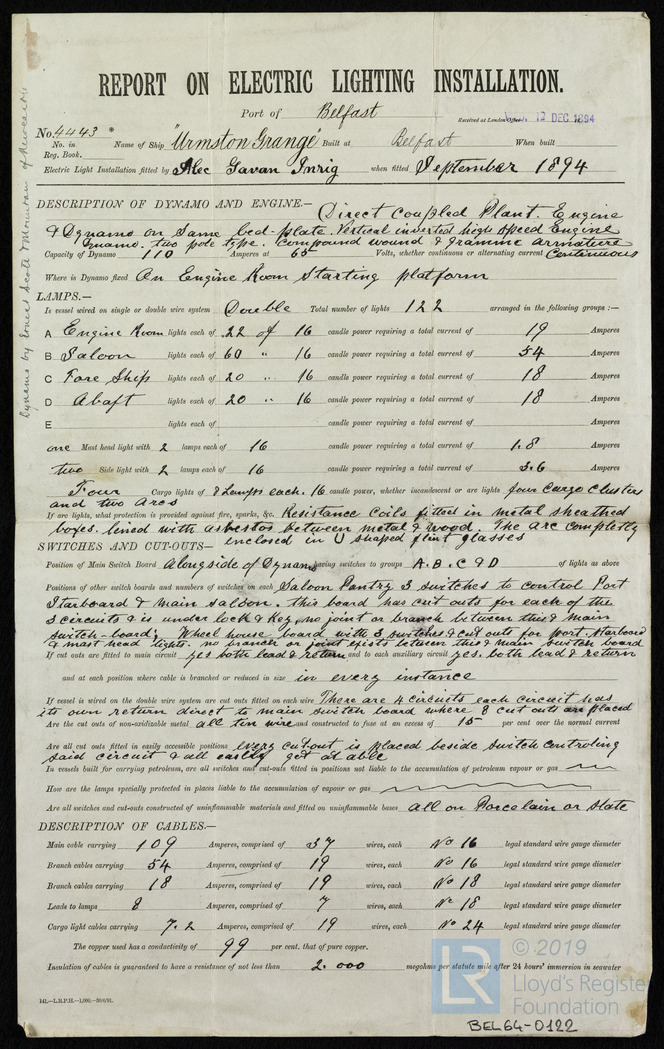 REPORT ON ELECTRIC LIGHTING INSTALLATION.
Port of Belfast
Received at London Office 12 DEC 1894
No. 4443 * No. in Reg. Book. Name of Ship "Urmston Grange" Built at Belfast When built
Electric Light Installation fitted by Alec Gavan Inrig when fitted September 1894
DESCRIPTION OF DYNAMO AND ENGINE.— Direct Coupled Plant. Engine
& Dynamo on same bed-plate. Vertical inverted high speed Engine
Dynamo. two pole type. Compound wound & gramme armature
Capacity of Dynamo 110 Amperes at 65 Volts, whether continuous or alternating current Continuous
Where is Dynamo fixed On Engine Room Starting platform
LAMPS.—
Is vessel wired on single or double wire system Double Total number of lights 122 arranged in the following groups :—
A Engine Room lights each of 22 of 16 candle power requiring a total current of 19 Amperes
B Saloon lights each of 60 " 16 candle power requiring a total current of 54 Amperes
C Fore Ship lights each of 20 " 16 candle power requiring a total current of 18 Amperes
D Abaft lights each of 20 " 16 candle power requiring a total current of 18 Amperes
E lights each of candle power requiring a total current of Amperes
one Mast head light with 2 lamps each of 16 candle power requiring a total current of 1.8 Amperes
two Side light with 2 lamps each of 16 candle power requiring a total current of 3.6 Amperes
Four Cargo lights of 8 Lamps each. 16 candle power, whether incandescent or arc lights four cargo clusters
and two Arcs
If arc lights, what protection is provided against fire, sparks, &c. Resistance Coils fitted in metal sheathed
boxes. lined with asbestos between metal & wood. The arc completly
enclosed in U shaped flint glasses
SWITCHES AND CUT-OUTS—
Position of Main Switch Board Alongside of Dynamo having switches to groups A. B. C & D of lights as above
Positions of other switch boards and numbers of switches on each Saloon Pantry 3 switches to control Port
Starboard & main saloon. this board has cut outs for each of the
3 circuits & is under lock & key, no joint or branch between this & main
switch-board; Wheel house board with 3 switches & cut outs for port. starboard
& mast head lights. no branch or joint exists between this & main switch board
If cut outs are fitted to main circuit yes both lead & return and to each auxiliary circuit yes. both lead & return
and at each position where cable is branched or reduced in size in every instance
If vessel is wired on the double wire system are cut outs fitted on each wire There are 4 circuits each circuit has
its own return direct to main switch board where 8 cut outs are placed
Are the cut outs of non-oxidizable metal all tin wire and constructed to fuse at an excess of 15 per cent over the normal current
Are all cut outs fitted in easily accessible positions every cut-out is placed beside switch controling
said circuit & all easily get at able
In vessels built for carrying petroleum, are all switches and cut-outs fitted in positions not liable to the accumulation of petroleum vapour or gas
How are the lamps specially protected in places liable to the accumulation of vapour or gas
Are all switches and cut-outs constructed of uninflammable materials and fitted on uninflammable bases all on Porcelain or slate
DESCRIPTION OF CABLES.—
Main cable carrying 109 Amperes, comprised of 37 wires, each No 16 legal standard wire gauge diameter
Branch cables carrying 54 Amperes, comprised of 19 wires, each No 16 legal standard wire gauge diameter
Branch cables carrying 18 Amperes, comprised of 19 wires, each No 18 legal standard wire gauge diameter
Leads to lamps 8 Amperes, comprised of 7 wires, each No 18 legal standard wire gauge diameter
Cargo light cables carrying 7.2 Amperes, comprised of 19 wires, each No 24 legal standard wire gauge diameter
The copper used has a conductivity of 99 per cent. that of pure copper.
Insulation of cables is guaranteed to have a resistance of not less than 2.000 megohms per statute mile after 24 hours' immersion in seawater
© 2019
LR Lloyd's Register
Foundation
BEL64-0122
Dynamo by Ernest Scott & Mountain of Newcastle